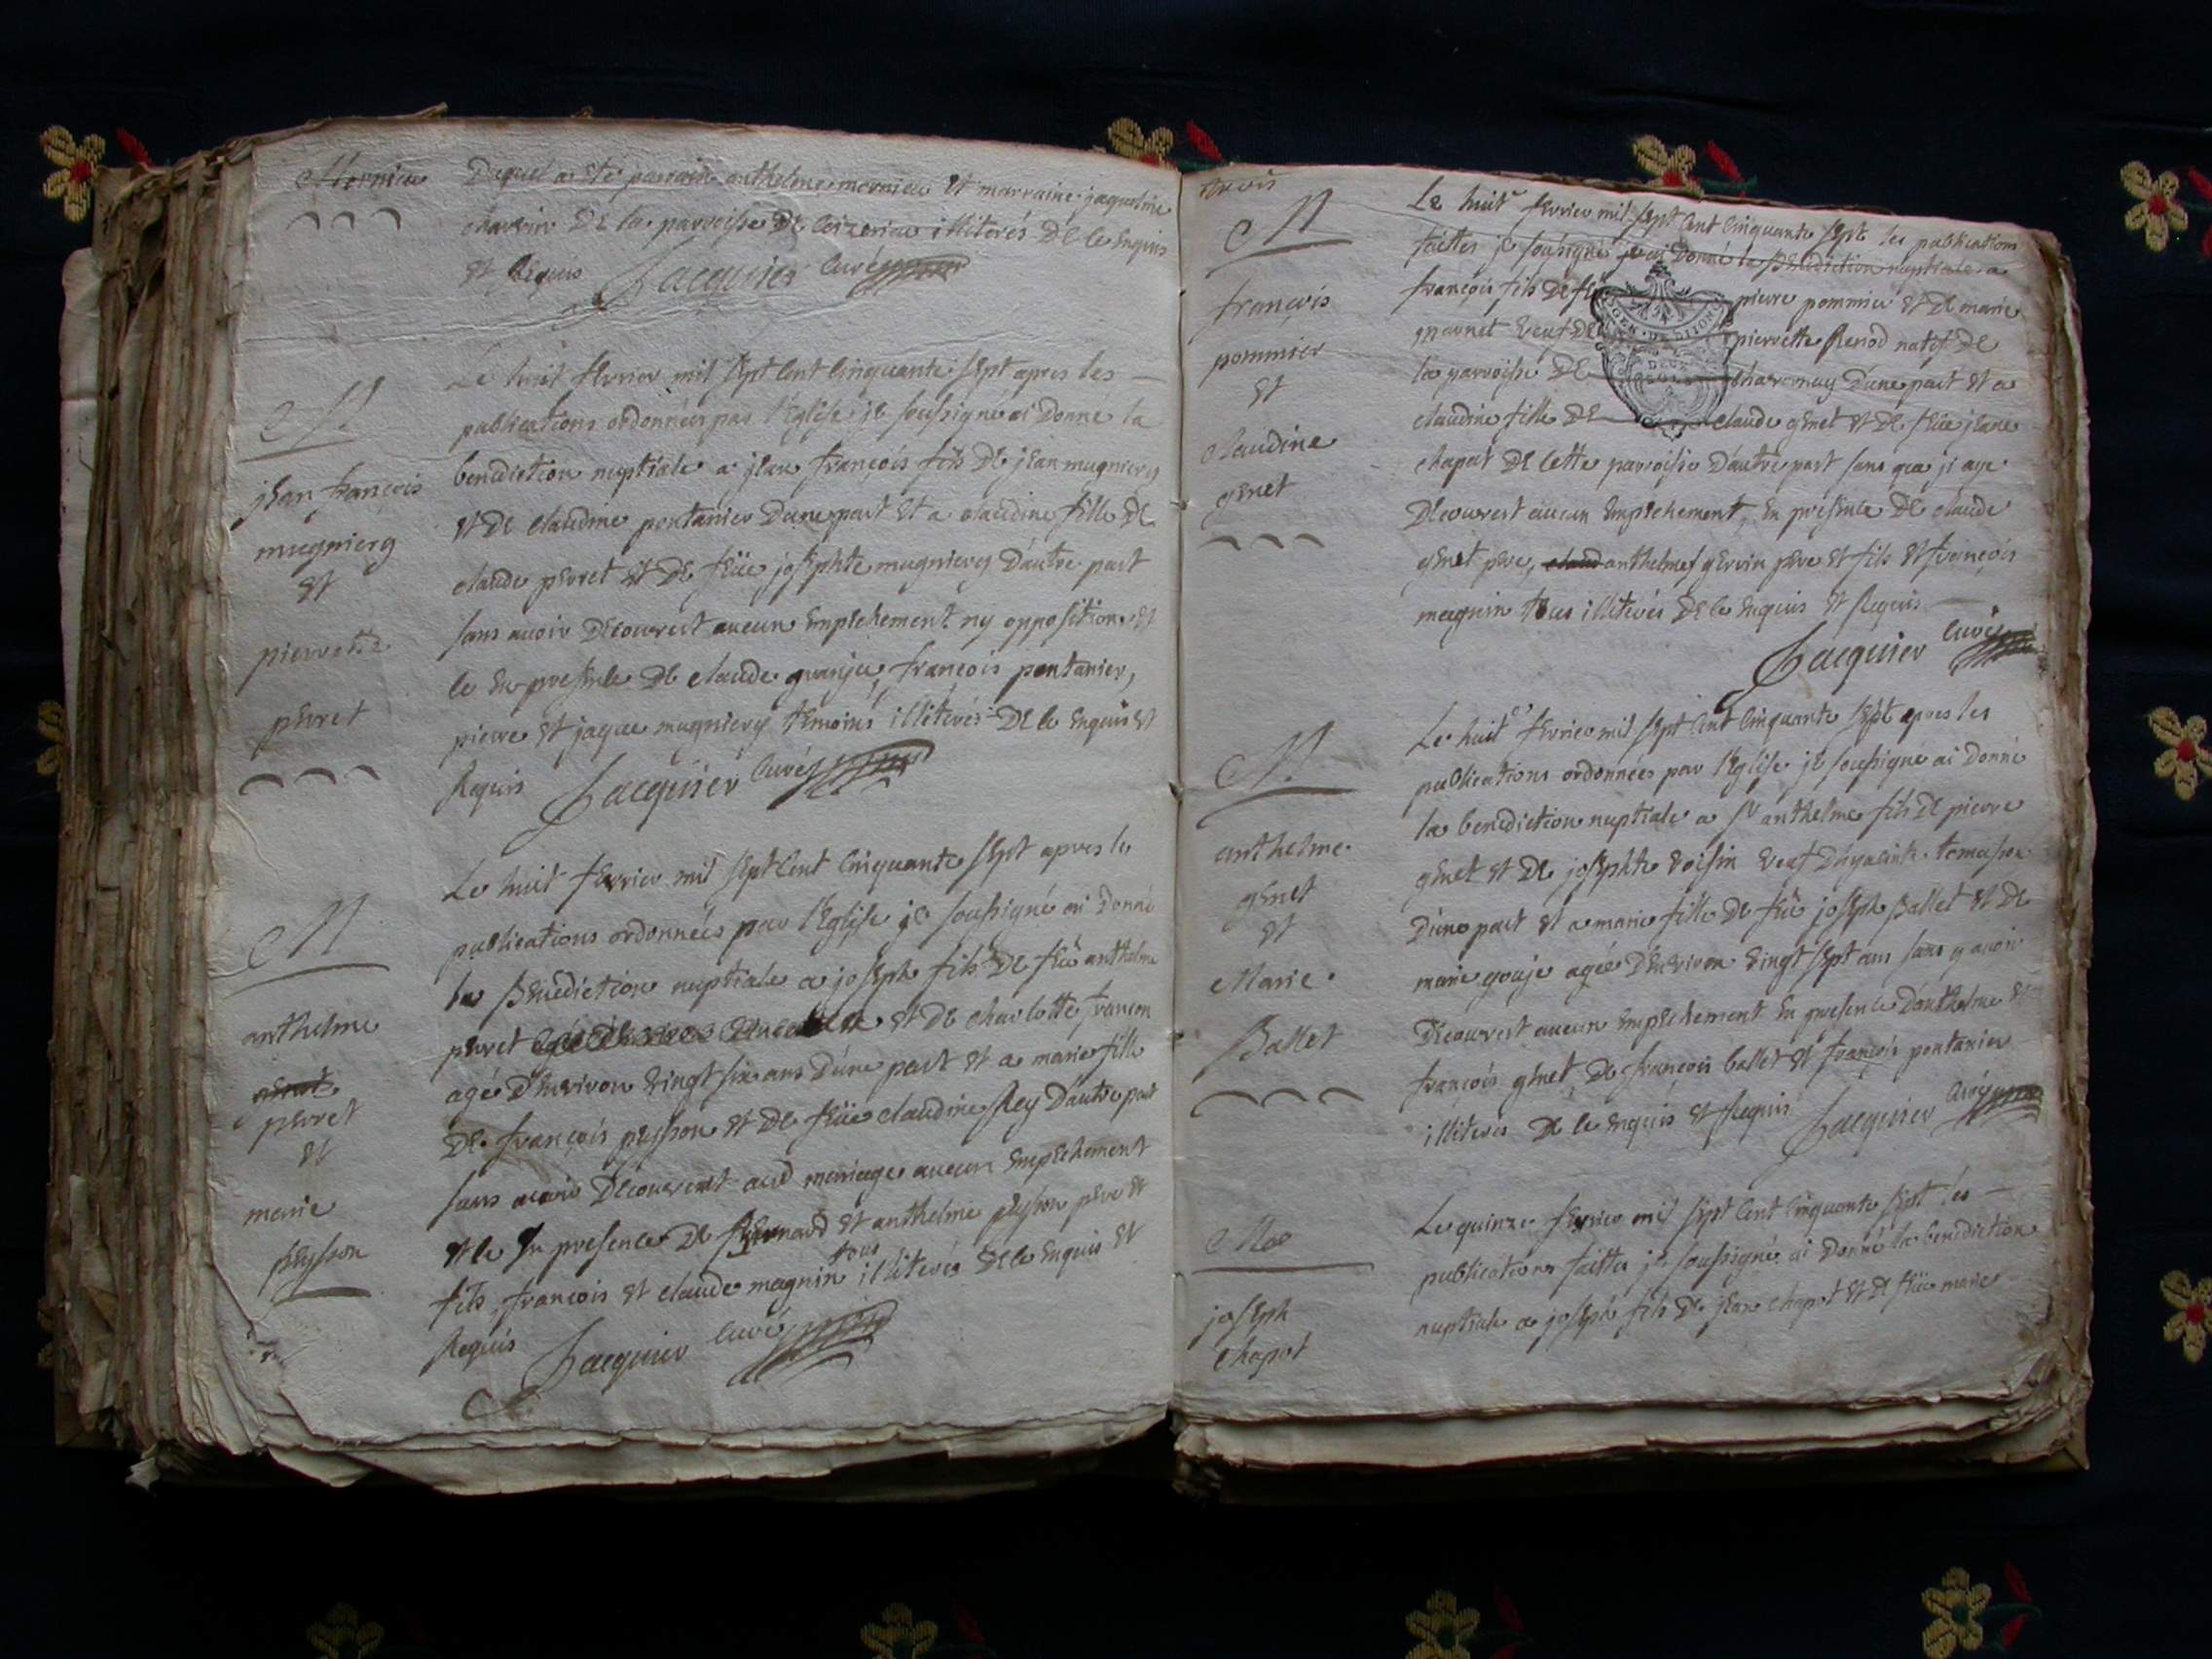 Mernieu
Duquel a Eté parrain anthelme mernieu Et marraine jaqueline
charvin DE la parroisse DE Ceizerieu illiterés DE ce Enquis
Et Requis Jacquier Curé
M
jEan françois
mugniery
Et
pierrette
pErret
Le huit fEvrier mil sEpt Cent Cinquante sEpt apres les
publications ordonnées par l'Eglise jE soussigné ai Donné la
benediction nuptiale a jEan françois fils DE jEan mugniery
Et DE claudine pontanier Dune part Et a claudine fille DE
claude pErret Et DE fEüe josEphte mugniery D'autre part
sans avoir DEcouvert aucun EmpEchement ny opposition Et
ce En presEnce DE claude granju, françois pontanier,
pierre Et jaque mugniery tEmoins illiterés DE ce Enquis Et
Requis Jacquier Curé
M
anthelme
genet
pErret
Et
marie
pEysson
Le huit fEvrier mil sEpt Cent Cinquante sEpt apres les
publications ordonnées par l'Eglise jE soussigné ai Donné
la BEnediction nuptiale a josEph fils DE fEü anthelme
pErret Et DE charlotte francon
agé D'Environ Vingt six ans D'une part Et a marie fille
DE françois pEysson Et DE fEüe claudine REy D'autre part
sans avoir DEcouvert aud mariage aucun EmpEchement
Et ce En presence DE Et anthelme pEysson pEre Et
fils, françois Et claude magnin tous illiterés DE ce Enquis Et
Requis Jacquier Curé
trois
M
françois
pommier
Et
claudine
gEnet
Le huit fEvrier mil sEpt Cent Cinquante sEpt les publications
faittes jE soussigné ai Donné la BEnediction nuptiale a
françois fils DE fEü pierre pommier Et DE marie
Veuf DE pierrette REnod natif DE
la parroisse DE chavornay D'une part Et a
claudine fille DE claude gEnet Et DE fEüe jEane
chapot DE Cette parroisse D'autre part sans que j'i aye
DEcouvert aucun EmpEchement, En presEnce DE claude
gEnet pEre, claud anthelme gErvin pEre Et fils Et françois
magnin tous illiterés DE ce Enquis Et Requis
Jacquier Curé
GEN. DE DIJON
DEUX
M
anthelme
gEnet
Et
Marie
Ballet
Le huit fEvrier mil sEpt Cent Cinquante sEpt apres les
publications ordonnées par l'Eglise jE soussigné ai Donné
la benediction nuptiale a sr anthelme fils DE pierre
gEnet Et DE josEphte Voisin Veuf D'hyacinte
D'une part Et a marie fille DE fEü josEph Ballet Et DE
marie gouje agée D'Environ Vingt sEpt ans sans y avoir
DEcouvert aucun EmpEchement En presence D'anthelme Et
françois gEnet, DE françois ballet Et françois pontanier
illiterés DE ce Enquis Et Requis Jacquier Curé
josEph
Chapot
Le quinze fEvrier mil sEpt Cent Cinquante sEpt les
publications faittes jE soussigné ai Donné la benediction
nuptiale a josEph fils DE jEan chapot Et DE fEüe marie